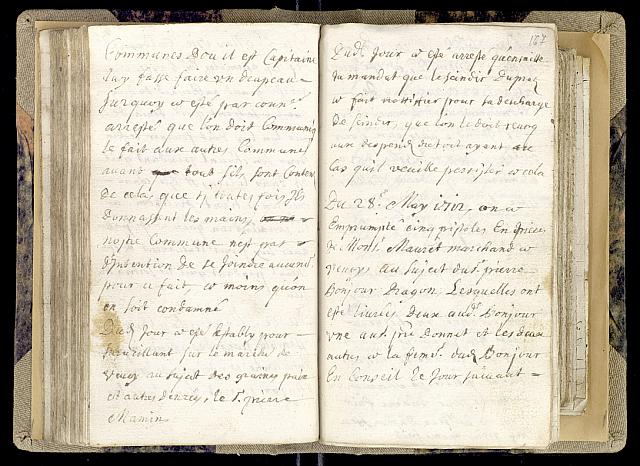 Communes Dou il est Capitaine
luy fasse faire un drapeau
Surquoy a esté par conn.
arresté que l'on doit Communiq
le fait aux autres Communes
avant tout s'ils sont Conten
de cela que si toutes fois ils
donnassent les mains
nostre Commune nest pas
d'Intention de se Joindre aucune
pour ce fait, a moins quon
en soit condamné
Dud. Jour a esté establÿ pour
surveillant sur le marché de
Vevey au suject des graines
et autres denrees, le S.r pierre
Mamin
137
Dud. Jour a esté arresté quensuitte
du mandat que le
a fait pour sa descharge
de que l'on le doit
aux despend
cas quil veuille persister a cela
Du 28.e May 1712, on a
Emprumpté cinq pistoles En
de Mons.r Mauret marchand a
Vevey, au suject du S.r pierre
Bonjour Dragon, Lesquelles ont
esté livrées deux aud. Bonjour
une au S.r Donnet et les deux
autres a la feme dud. Bonjour
En Conseil le Jour suivant